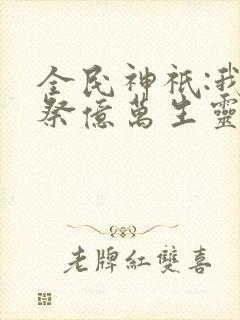 全民神祇:我
祭億萬生靈
老牌紅雙喜